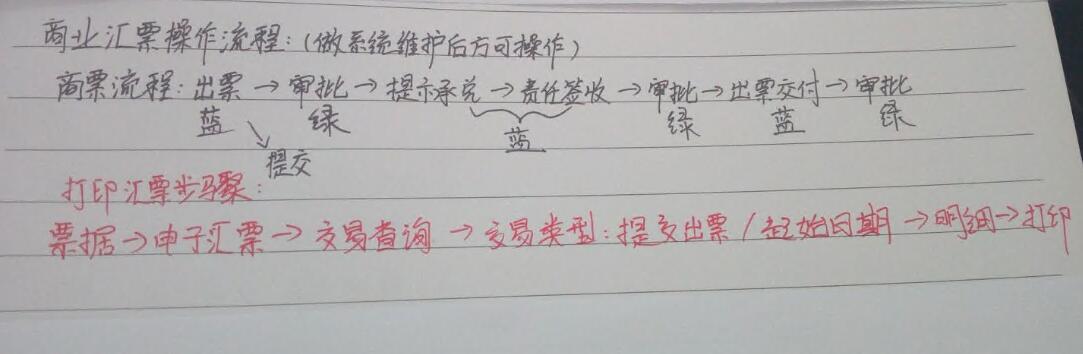 商业汇票操作流程:(做系统维护后方可操作)
商票流程:出票→审批→提示承兑→责任签收→审批→出票交付→审批
蓝 绿 蓝 绿 蓝 绿
提交
打印汇票步骤:
票据→电子汇票→交易查询→交易类型:提交出票/起始日期→明细→打印